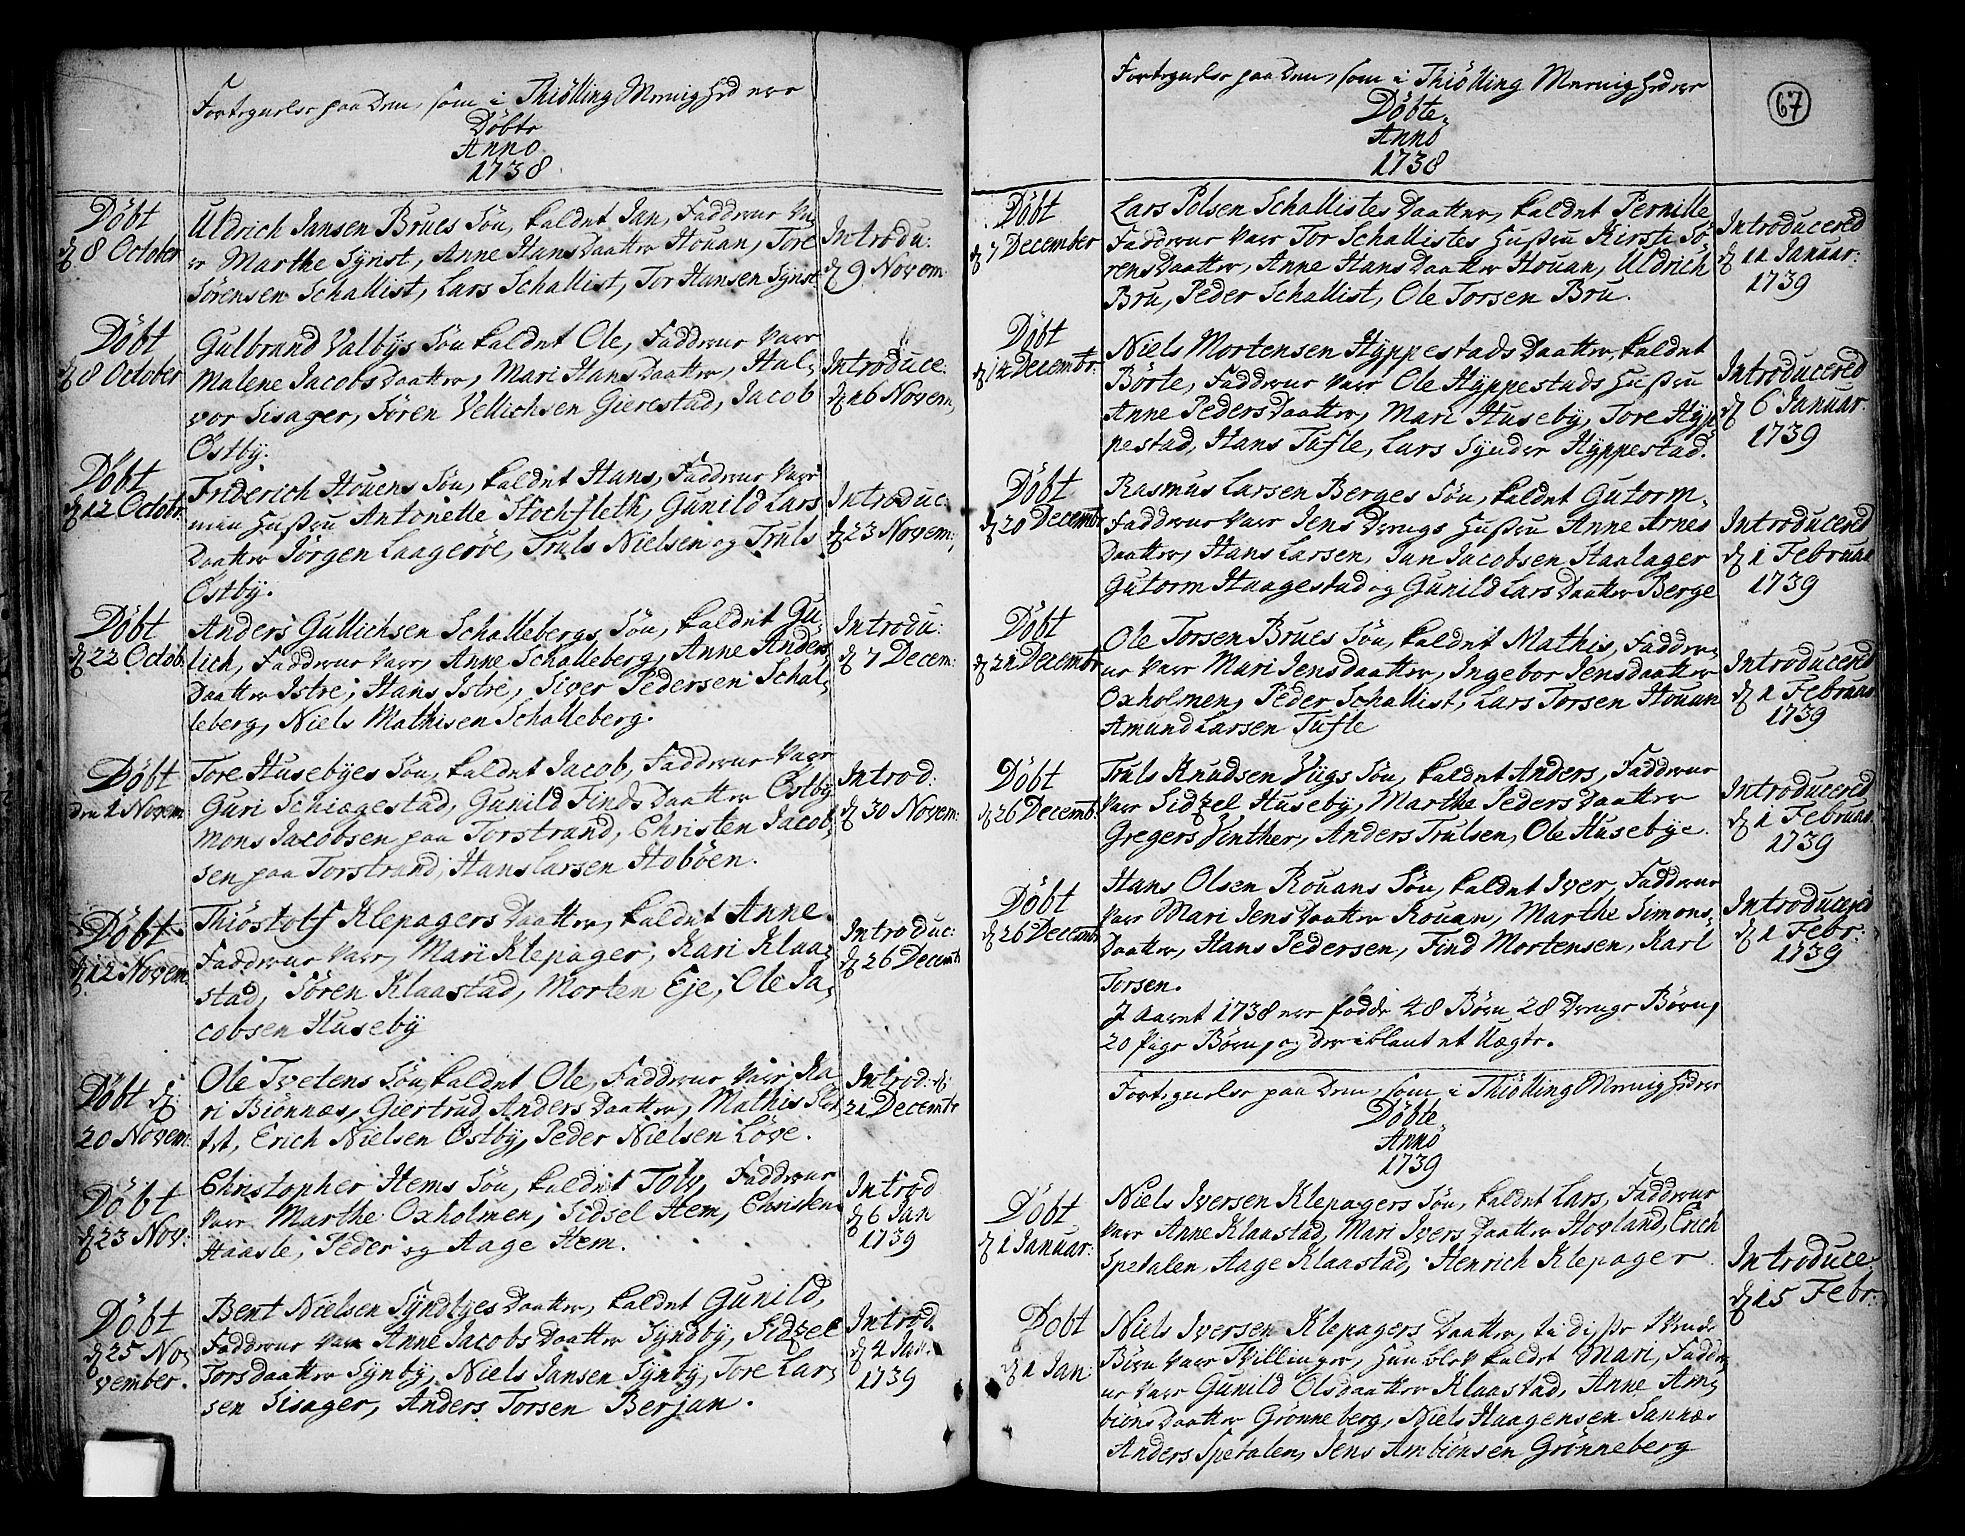 Fortegnelse paa Dem, som i Thiölling Menighed ere
Döbte
Anno
1738
Döbt
d 8 October
Uldrich Jansen Brues Sön, kaldet Jan, Faddrene vare
Marthe Synst, Anne Hans Daatter Houan, Tore
Sörensen Schallist, Lars Schallist, Tor Hansen Synst
Introdu:
d 9 Novem:
Döbt
d 8 October
Gulbrand Valbys Sön kaldet Ole, Faddrene vare
Malene Jacobs Daatter, Mari Hans Daatter, Hal-
vor Sisager, Sören Vellichsen Gierestad, Jacob
Östby.
Introduce:
d 16 Novem,
Döbt
d 12 Octobr
Friderich Houens Sön, kaldet Hans, Faddrene vare
min Hustru Antonelle Stochfleth, Gunild Lars
Daatter Jörgen Laageröe, Truls Nielsen og Truls
Östby.
Introduc:
d 23 Novem:
Döbt
d 22 Octob:
Anders Gullichsen Schallebergs Sön, kaldet Gu-
lich, Faddrene vare, Anne Schalleberg, Anne Anders
Daatter Istre, Hans Istre, Siver Pedersen Schal-
leberg, Niels Mathisen Schalleberg.
Introdu:
d 7 Decem:
Döbt
den 1 Novem
Tore Husebyes Sön, kaldet Jacob, Faddrene vare
Guri Schiægestad, Gunild Finds Daatter Östby
Mons Jacobsen paa Torstrand, Christen Jacob-
sen paa Torstrand, Hans Larsen Hoböen.
Introd:
d 30 Novem:
Döbt
d 12 Novem:
Thiöstolf Klepagers Daatter, kaldet Anne.
Faddrene vare, Mari Klepager, Kari Klaa-
stad, Sören Klaastad, Morten Eje, Ole Ja-
cobsen Huseby
Introduc:
d 26 Decemb
Döbt d
20 Novem:
Ole Tvetens Sön, kaldet Ole, Faddrene vare, Ka-
ri Biönnæs, Giertrud Anders Daatter, Mathis
Erich Nielsen Östby, Peder Nielsen Löve.
Introd: d
21 Decembr
Döbt
d 23 Nov:
Christopher Hems Sön, kaldet Tolv, Faddrene
vare Marthe Oxholmen, Sidsel Hem, Christen
Haasle, Peder og Aage Hem.
Introd
d 6 Jan
1739
Döbt
d 25 No-
vember.
Bent Nielsen Syndbyes Daatter, kaldet Gunild,
Faddrene vare Anne Jacobs Daatter Syndby, Sidzel
Torsdaatter Synby, Niels Jansen Synby, Tore Lar-
sen Sisager, Anders Torsen Berjan.
Introd.
d 4 Jan.
1739
67
Fortegnelse paa Dem, som i Thiölling Menighed ere
Döbte
Anno
1738
Döbt
d 7 December
Lars Polsen Schallistes Daatter, kaldet Pernille
Faddrene vare Tor Schallistes Hustru Kirsti Sö-
rens Daatter, Anne Hans Daatter Houan, Uldrich
Bru, Peder Schallist, Ole Torsen Bru.
Introducered
d 11 Januar:
1739
Döbt
d 14 Decembr:
Niels Mortensen Hyppestads Daatter, kaldet
Börte, Faddrene vare Ole Hyppestads Hustru
Anne Peders Daatter, Mari Huseby, Tore Hyp-
pestad, Hans Tufte, Lars Syndre Hyppestad.
Introducered
d 6 Januar.
1739
Döbt
d 20 Decembr
Rasmus Larsen Berges Sön, kaldet Gutorm.
Faddrene vare Jens Hustru Anne Arnes
Daatter, Hans Larsen, Jan Jacobsen Haalager
Gutorm Haagestad og Gunild Lars Daatter Berge
Introducered
d 1 Februar
1739
Döbt
d 21 Decembr
Ole Torsen Brues Sön, kaldet Mathis, Faddre-
ne vare Mari Jensdaatter, Ingebor Jensdaatter
Oxholmen, Peder Schallist, Lars Torsen Houan
Amund Larsen Tufte
Introducered
d 1 Februar
1739
Döbt
d 26 Decemb:
Truls Knudsen Viigs Sön, kaldet Anders, Faddrene
vare Sidzel Huseby, Marthe Peders Daatter
Gregers Vinther, Anders Trulsen, Ole Husebye.
Introducered
d 1 Februar
1739
Döbt
d 26 Decembr
Hans Olsen Rouans Sön, kaldet Iver, Faddrene
vare Mari Jens Daatter Rouan, Marthe Simons-
Daatter, Hans Pedersen, Find Mortensen, Karl
Torsen.
Introducered
d 1 Febr:
1739
J Aaret 1738 ere födde 48 Börn 28 Drenge Börn,
20 Pige Börn, og der iblant et Uægte.
Fortegnelse paa Dem, som i Thiölling Menighed ere
Döbte
Anno
1739
Döbt
d 1 Januar:
Niels Iversen Klepagers Sön, kaldet Lars, Faddrene
vare Anne Klaastad, Mari Ivers Daatter Hovland, Erich
Spetalen, Aage Klaastad, Henrich Klepager
Introduce:
d 15 Febr:
Döbt
d 1 Jan:
Niels Iversen Klepagers Daatter, disse
Börn vare Tvillinger, hun blev kaldet Mari, Faddre-
ne vare Gunild Olsdaatter Klaastad, Anne Am-
biöns Daatter Grönneberg, Niels Haagensen Sannæs
Anders Spetalen, Jens Ambiönsen Grönneberg